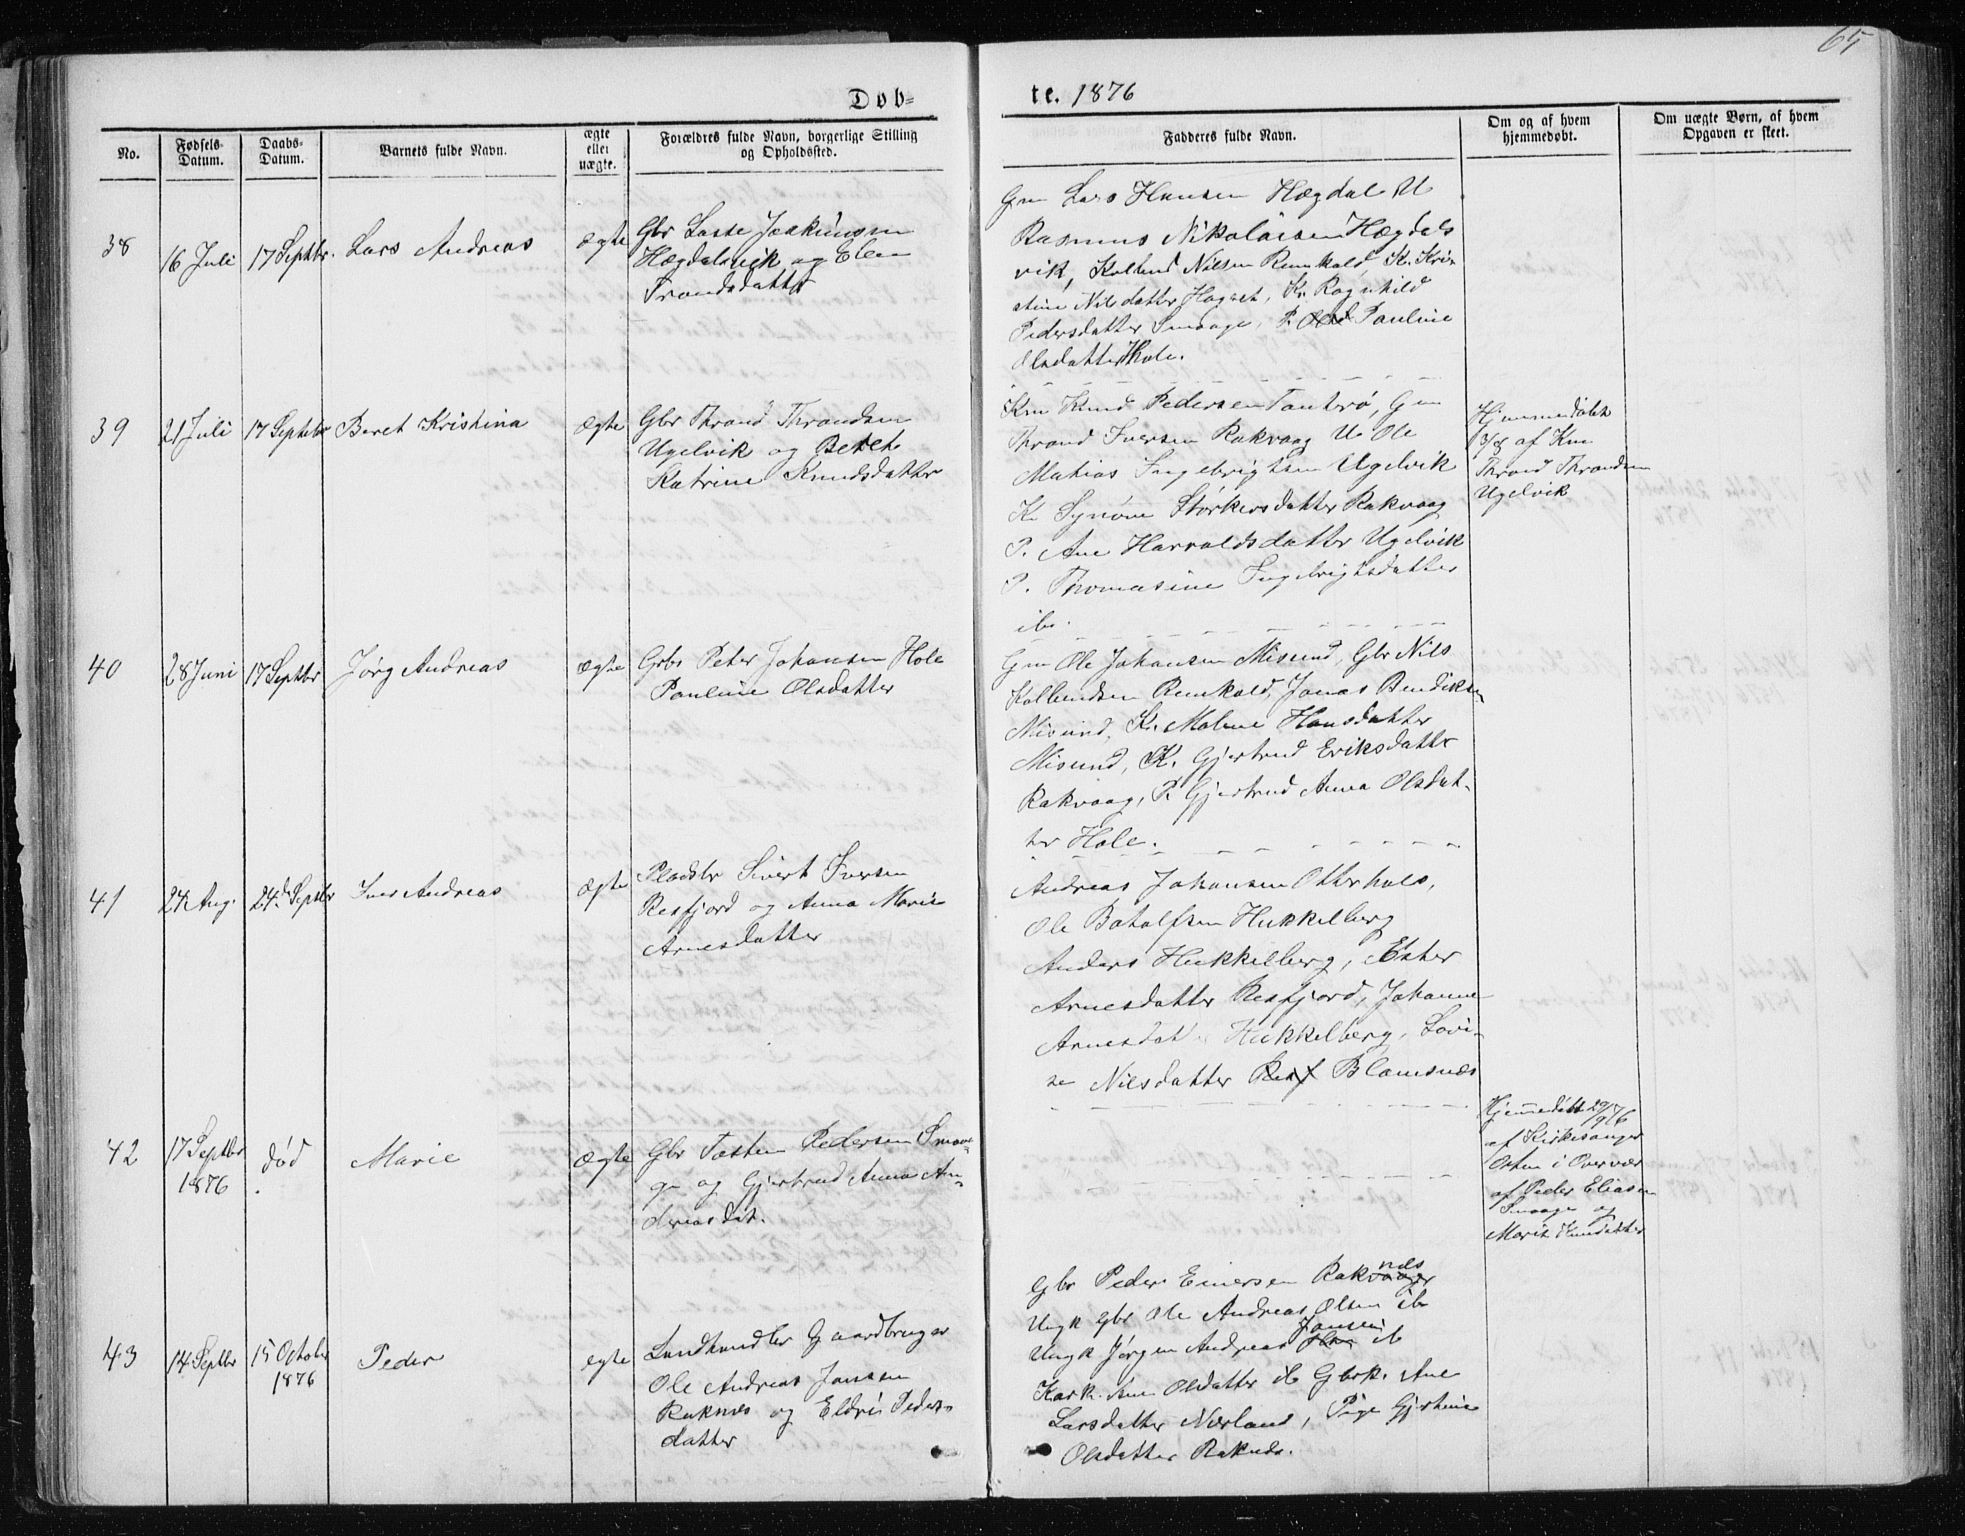 65
Døb-
te. 1876
No.
Fødsels-
Datum.
Daabs-
Datum.
Barnets fulde Navn.
ægte
eller
uægte.
Forældres fulde Navn, borgerlige Stilling
og Opholdssted.
Fadderes fulde Navn.
Om og af hvem
hjemmedøbt.
Om uægte Børn, af hvem
Opgaven er skeet.
38
16 Juli
17 Septbr.
Lars Andreas
ægte
Gbr Lasse Joakimsen
Hægdalsvik og Elen
Trondsdatter
Gm Lars Hansen Hægdal U
Rasmus Nikolaisen Hægdals
vik, Kolbend Nilsen Runkold, K. Kri-
stine Nilsdatter, K. Ragnhild
Pedersdatter Smaage, P. Pauline
Olsdatter Hole.
39
21 Juli
17 Septbr
Beret Kristina
ægte
Gbr Thrond Throndsen
Ugelvik og Beret
Katrine Knudsdatter
Km Knud Pedersen Tautrø, Gm
Thrond Iversen Rakvaag U Ole
Mathias Ingebrigtsen Ugelvik
K. Synøve Størkersdatter Rakvaag
P. Ane Harroldsdatter Ugelvik
P. Thomasine Ingebrigtsdatter
ibr.
Hjemmedøbt
7/8 af Km
Thrond Throndsen
Ugelvik
40
28 Juni
17 Septbr
Jørg Andreas
ægte
Gbr Peter Johansen Hole
Pauline Olsdatter
Gm Ole Johansen Misund, Gbr Nils
Kolbendsen Runkold, Jonas Bendiksen
Misund, K. Malene Hansdatter
Misund, K. Gjertrud Eriksdatter
Rakvaag, P. Gjertrud Anna Olsdat-
ter Hole.
41
24 Aug.
24de Septbr
Iver Andreas
ægte
Pladsbr Sivert Iversen
Resfjord og Anna Marie
Arnesdatter
Andreas Johansen Otterhals,
Ole Botolfsen Hukkelberg
Anders Hukkelberg, Ester
Arnesdatter Resfjord, Johanne
Arnesdat Hukkelberg, Lovi-
se Nilsdatter Resf Blomsnæs
42
17 Septbr
1876
død
Marie
ægte
Gbr Tosten Pedersen Smaa-
ge og Gjertrud Anna An-
dreasdat.
Hjemmedøbt 20/9 76
af Kirkesanger
Osten i Overvær
af Peder Eliasen
Smaage og
Marit Knudatter
43
14 Septbr
15 October
1876
Peder
egte
Landhandler Gaardbruger
Ole Andreas Jansen
Raknes og Eldri Peders-
datter
Gbr Peder Einersen Raknes
Ungk Gbr Ole Andreas Olsen ib
Ungk Jørgen Andreas Jansen ib
Kark. Ane Olsdatter ib Gbrk. Ane
Larsdatter Nærland, Pige Gjertine
Olsdatter Raknes.